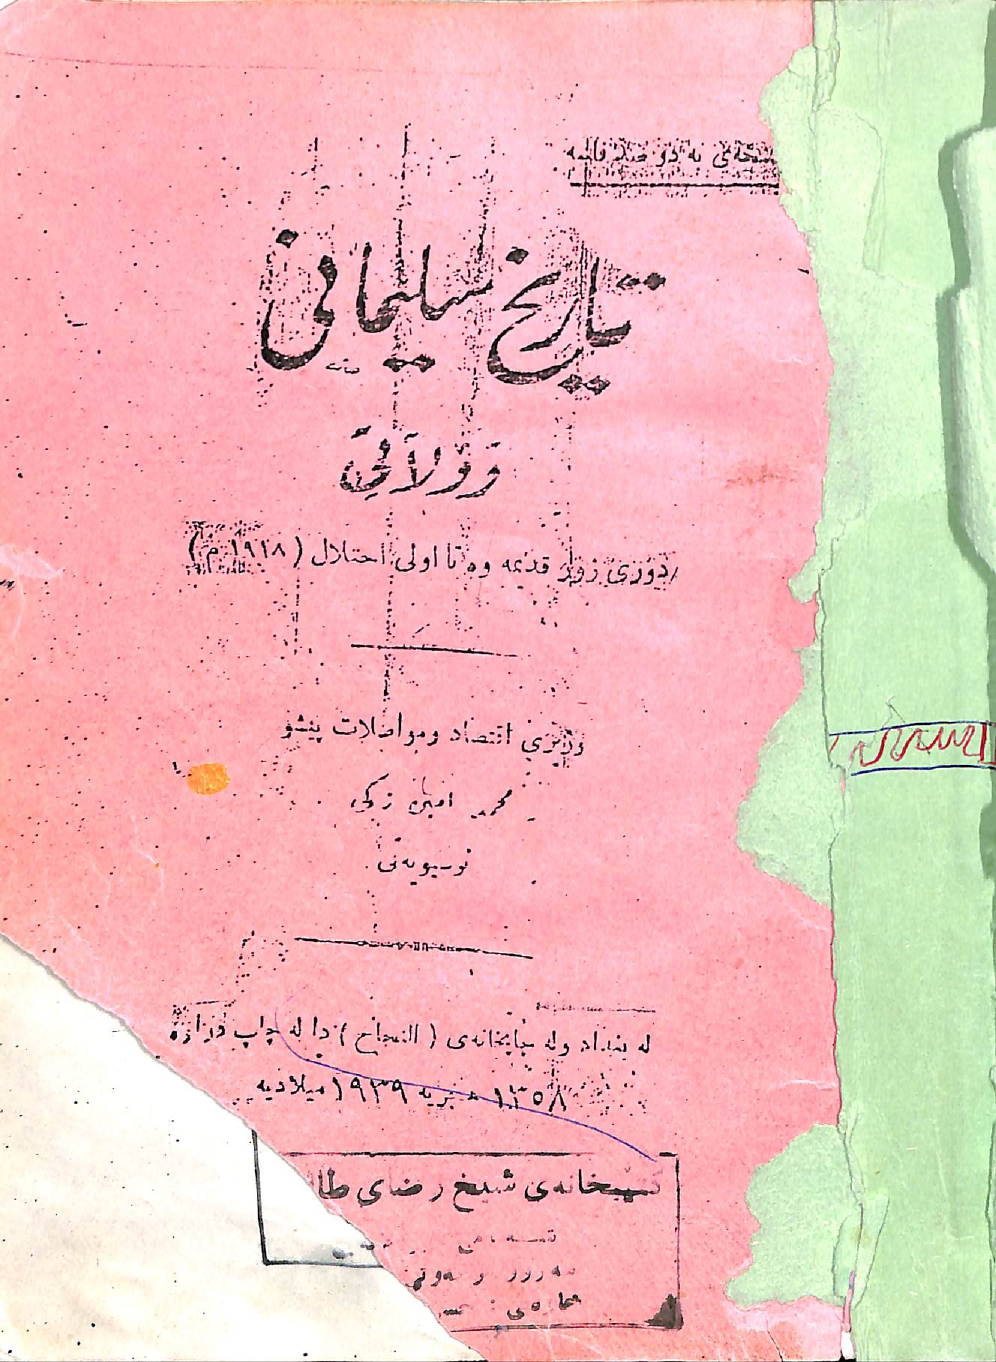 نسخه‌ی به دو صد فلسه
تاریخ سلیمانی
وَ وُلاَتِیْ
دوری زور قدیمه وه تا اولی احتلال (١٩١٨ م)
وزیری اقتصاد ومواصلات پیشو
محمد امین زکی
نوسیویه‌تی
له بغداد وله چاپخانه‌ی ( النجاح ) دا له چاپ دراوه
١٣٥٨ هجریه ١٩٣٩ میلادیه
کتیبخانه‌ی شیخ رضای